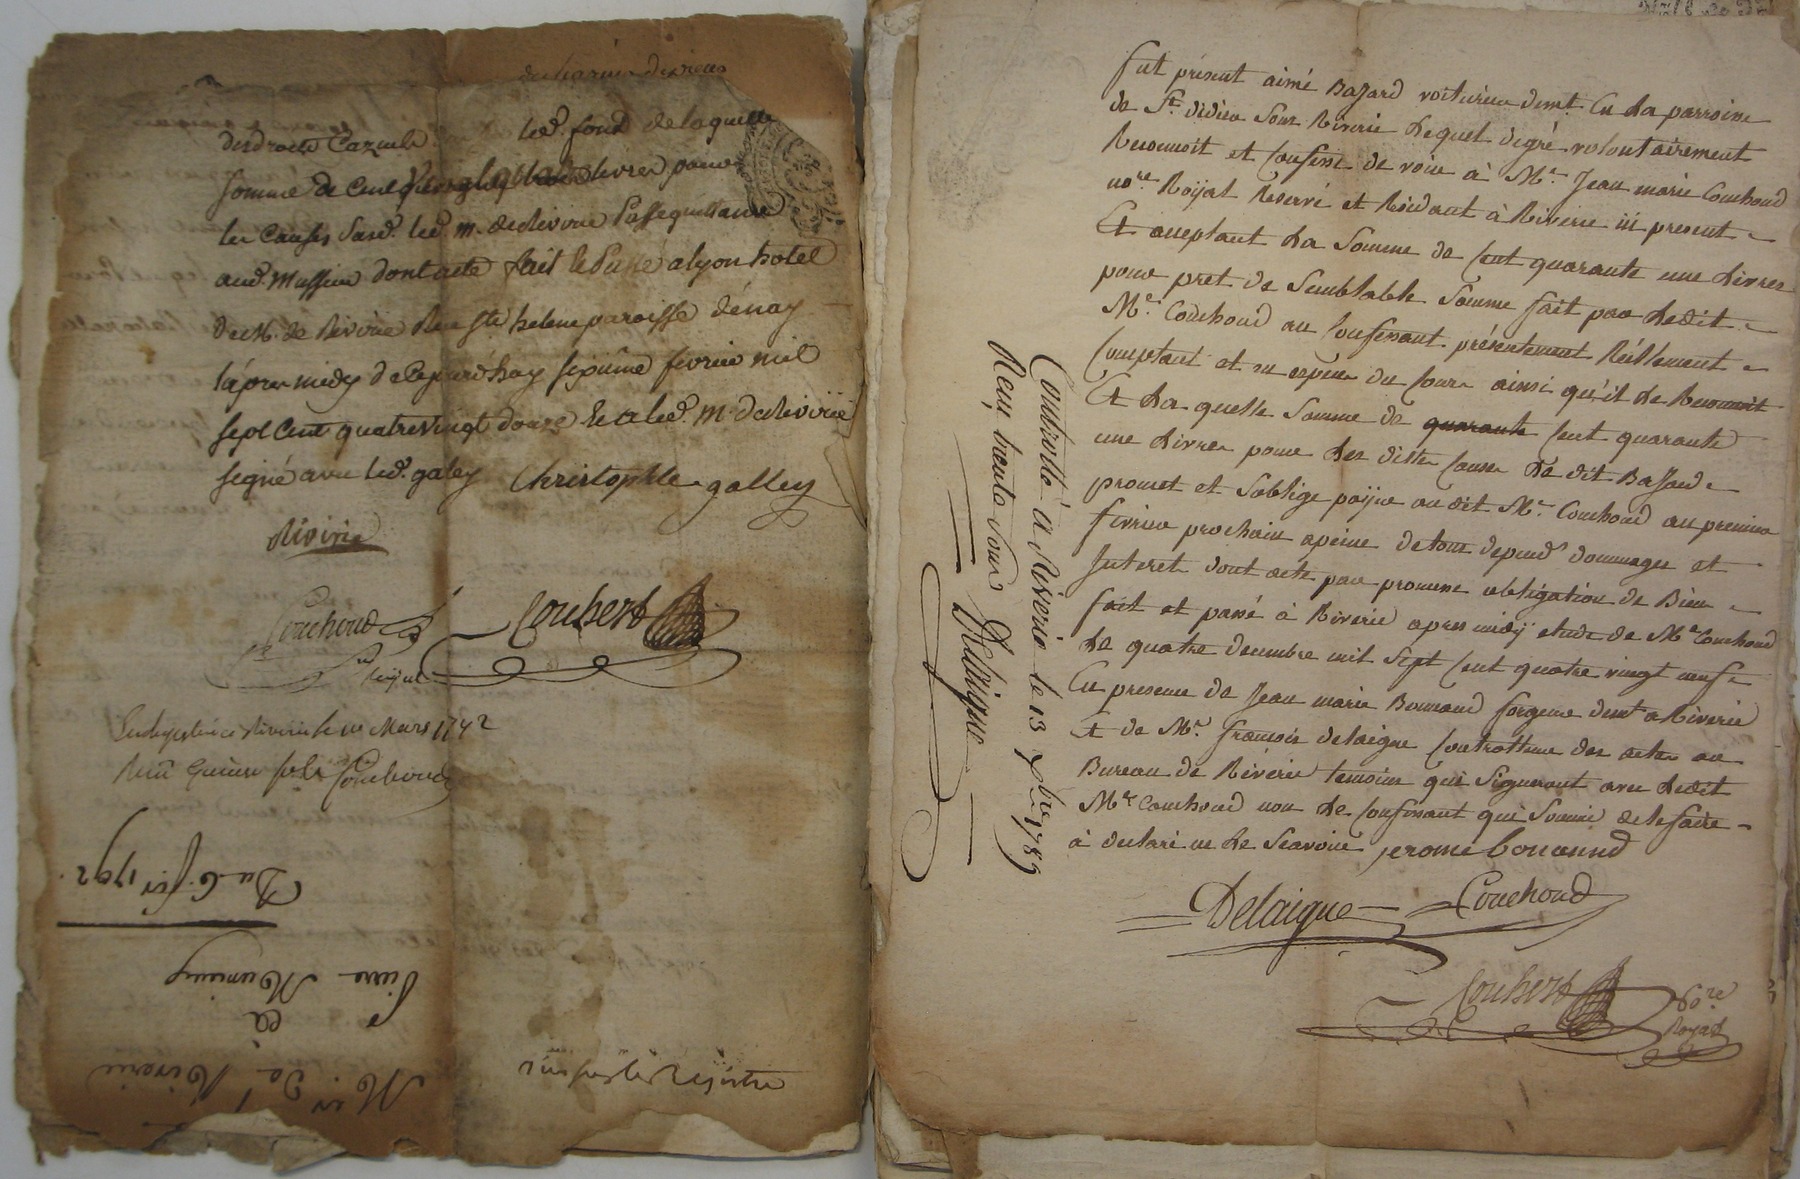 desdroits Cazuels led. fond de laquelle
somme de Cent livres pour
les Causes susd. led. m. de Rivirie passe quittance
aud. Mussieu dont acte fait et passé a lyon hotel
de M. de Rivirie Rue Ste helene paroisse d'énay
l'apres midy de Cejourd'huy sixième fevrier mil
sept Cent quatre vingt douze et a led. m. de Rivirie
signé avec led. galey Christophle galley
Rivirie
Couchoud
Couhert
Royal
mars 1792
Reçu quinze sols Couchoud
Du 6. fer 1792
à
Mr de Riverie
sur le Registre
fut présent aimé Bajard voiturier demt. en la parroisse
de St. didier sous Riverie Lequel degré volontairement
Reconnoit et Confesse devoir à Me. Jean marie Couchoud
nore. Royal Reservé et Résidant à Riverie ici present
Et acceptant La Somme de Cent quarante une Livres
pour pret de Semblable Somme fait par Ledit
Me. Couchoud au Confessant présentement Réellement
Comptant et en espèces du Cours ainsi qu'il Le Reconnoit
Et La quelle Somme de quarante Cent quarante
une Livres pour Les dittes Causes Le dit Bajard
promet et s'oblige paijer au dit Me. Couchoud au premier
fevrier prochain apeine de tous depends dommages et
Interet dont acte par promesse obligation de Biens
fait et passé à Riverie apres midÿ etude de Me Couchoud
Le quatre decembre mil Sept Cent quatre vingt neuf
En presence de Jean marie Bonnand forgeur demt a Riverie
Et de Mr. francois delaigue Controlleur des actes au
Bureau de Riverie temoins qui Signeront avec Ledit
Me Couchoud non Le Confessant qui Sommé de le faire
à declaré ne Le Scavoir jerome bonannd
Delaigue Couchoud
Couhert nore
Royal
Controllé à Riverie le 13 Xbre 1789
Reçu trente sous Delaigue